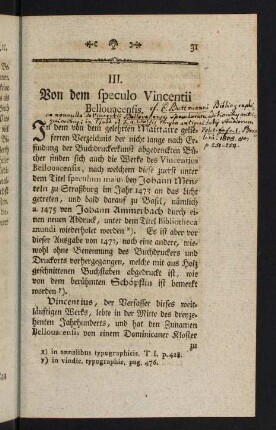 31
III.
Von dem speculo Vincentii
Bellouacensis.
In dem von dem gelehrten Maittaire gelie-
ferten Verzeichnis der nicht lange nach Er-
findung der Buchdruckerkunst abgedruckten Bü-
cher finden sich auch die Werke des Vincentius
Bellouacensis, nach welchem diese zuerst unter
dem Titel speculum maius bey Johann Men-
telin zu Straßburg im Jahr 1473 an das Licht
getreten, und darauf zu Basel, nämlich
a. 1475 von Johann Ammerbach durch ei-
nen neuen Abdruk, unter dem Titel bibliotheca
mundi wiederholet worden x). Es ist aber vor
dieser Ausgabe von 1473, noch eine andere, wie-
wohl ohne Benennung des Buchdruckers und
Druckorts vorhergegangen, welche mit aus Holz
geschnittenen Buchstaben abgedruckt ist, wie
von dem berühmten Schöpflin ist bemerkt
worden y).
Vincentius, der Verfasser dieses weit-
läuftigen Werks, lebte in der Mitte des dreyze-
henten Jahrhunderts, und hat den Zunamen
Bellouacensis von einem Dominicaner Kloster
zu
x) in annalibus typographicis. T. I. p. 428.
y) in vindic. typographic. pag. 476.